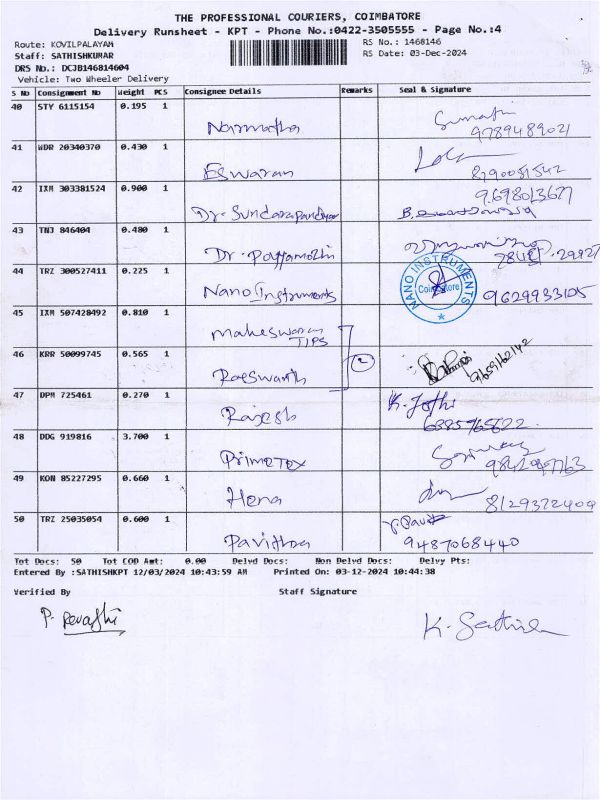 THE PROFESSIONAL COURIERS, COIMBATORE
Delivery Runsheet - KPT - Phone No.:0422-3505555 - Page No.:4
Route: KOVILPALAYAM
RS No.: 1468146
Staff: SATHISHKUMAR
RS Date: 03-Dec-2024
DRS No.: DCJB146814604
Vehicle: Two Wheeler Delivery
S No Consignment No Weight PCS Consignee Details Remarks Seal & Signature
40 STY 6115154 0.195 1
Narmatha 9789489021
41 WDR 20340370 0.430 1
Eswaran
42 IXM 303381524 0.900 1
Dr. Sundarapandian
43 TNJ 846404 0.480 1
Dr. Poyyamozhi
44 TRZ 300527411 0.225 1
Nano Instruments NANO INSTRUMENTS Coimbatore 9629933105
45 IXM 507428492 0.810 1
Maheswaran
TIPS
46 KRR 50099745 0.565 1
2
47 DPM 725461 0.270 1
Rajesh K. Jothi
48 DDG 919816 3.700 1
Primetex
49 KON 85227295 0.660 1
Hena 8129372409
50 TRZ 25035054 0.600 1
Pavithra 9487068440
Tot Docs: 50 Tot COD Amt: 0.00 Delvd Docs: Non Delvd Docs: Delvy Pts:
Entered By :SATHISHKPT 12/03/2024 10:43:59 AM Printed On: 03-12-2024 10:44:38
Verified By Staff Signature
P. Revathi